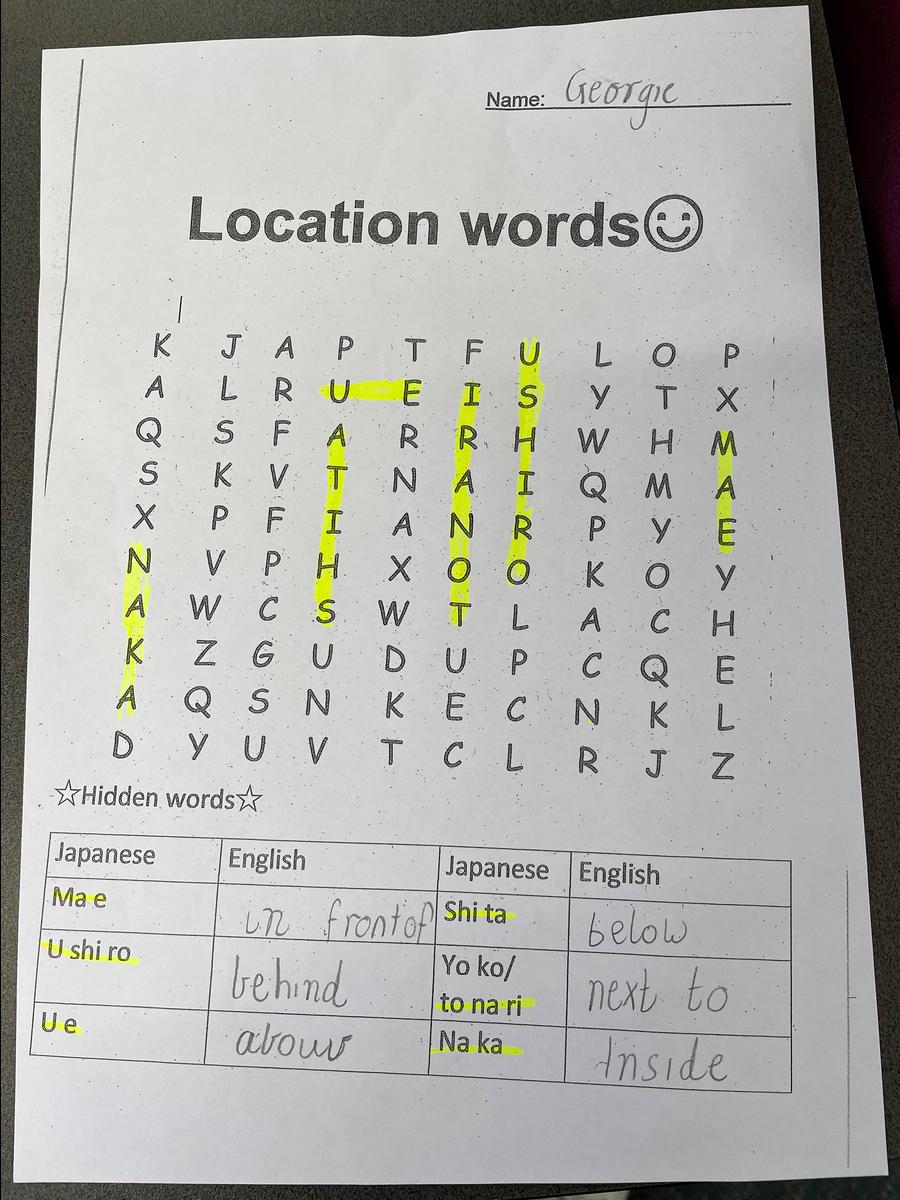 Name: Georgie
Location words
K J A P T F U L O P
A L R U E I S Y T X
Q S F A R R H W H M
S K V T N A I Q M A
X P F I A N R P Y E
N V P H X O O K O Y
A W C S W T L A C H
K Z G U D U P C Q E
A Q S N K E C N K L
D Y U V T C L R J Z
☆Hidden words☆
Japanese English Japanese English
Ma e in front of Shi ta below
U shi ro behind Yo ko/
to na ri next to
U e above Na ka Inside